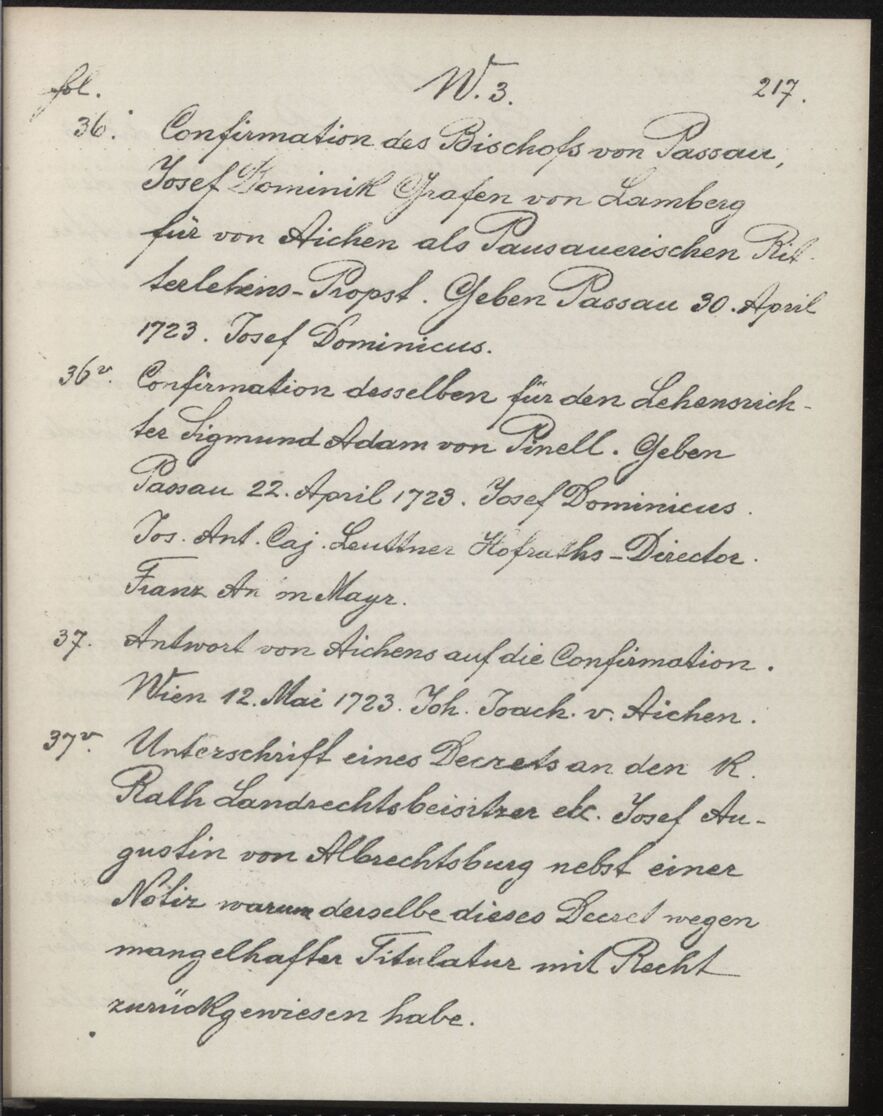 fol. W. 3. 217.
36. Confirmation des Bischofs von Passau,
Josef Dominik Grafen von Lamberg
für von Aichen als Pausauerischen Rit-
terlehens-Propst. Geben Passau 30. April
1723. Josef Dominicus.
36v. Confirmation desselben für den Lehensrich-
ter Sigmund Adam von Pinell. Geben
Passau 22. April 1723. Josef Dominicus.
Jos. Ant. Caj. Leuttner Hofraths-Director.
Franz Mayr.
37. Antwort von Aichens auf die Confirmation.
Wien 12. Mai 1723. Joh. Joach. v. Aichen.
37v. Unterschrift eines Decrets an den K.
Rath Landrechtsbeisitzer etc. Josef Au-
gustin von Albrechtsburg nebst einer
Notiz warum derselbe dieses Decret wegen
mangelhafter Titulatur mit Recht
zurückgewiesen habe.